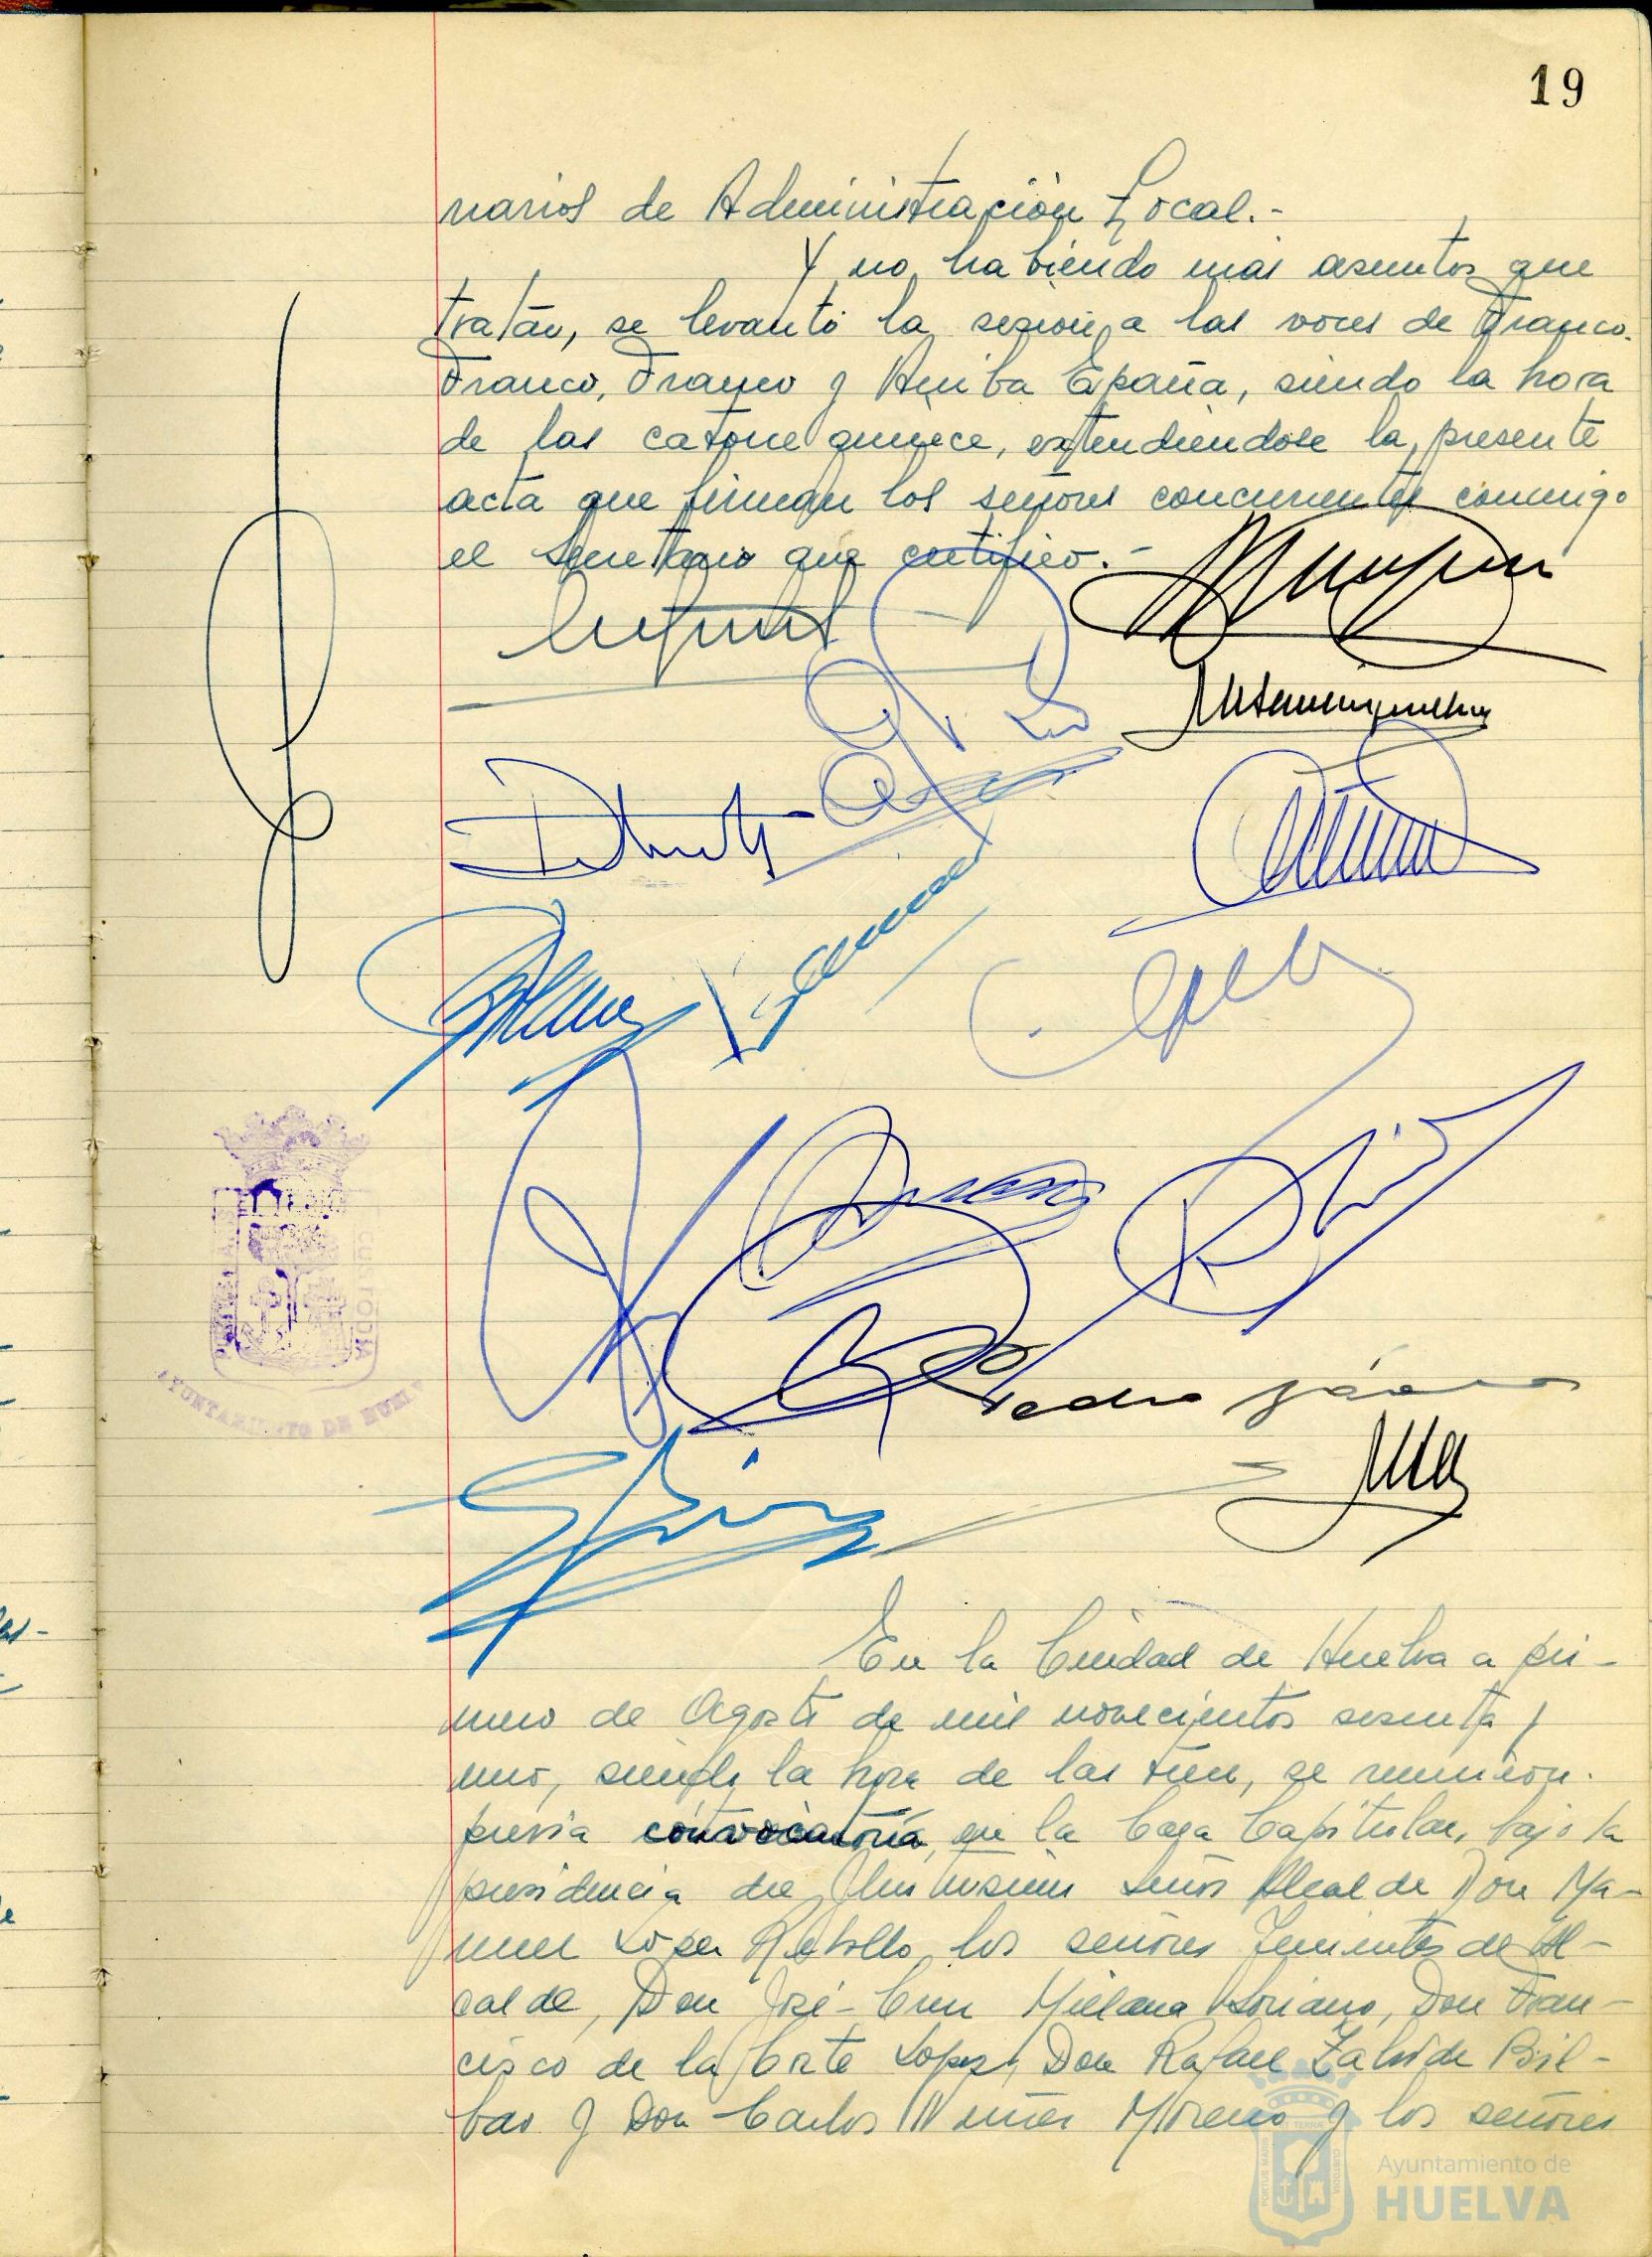 19
narios de Administración Local.-
Y no habiendo más asuntos que
tratar, se levantó la sesión, a las voces de Franco.
Franco, Franco y Arriba España, siendo la hora
de las catorce quince, extendiéndose la presente
acta que firman los señores concurrentes conmigo
el Secretario que certifico.-
Pedro
AYUNTAMIENTO DE HUELVA
En la Ciudad de Huelva a pri-
mero de Agosto de mil novecientos sesenta y
uno, siendo la hora de las trece, se reunieron.
previa convocatoria, en la Casa Capitular, bajo la
presidencia del Ilustrísimo Señor Alcalde Don Ma-
nuel López Rebollo, los señores Tenientes de Al-
calde, Don José-Cruz Millana Soriano, Don Fran-
cisco de la Corte López, Don Rafael Zalvide Bil-
bao y Don Carlos Núñez Moreno y los señores
Ayuntamiento de
HUELVA